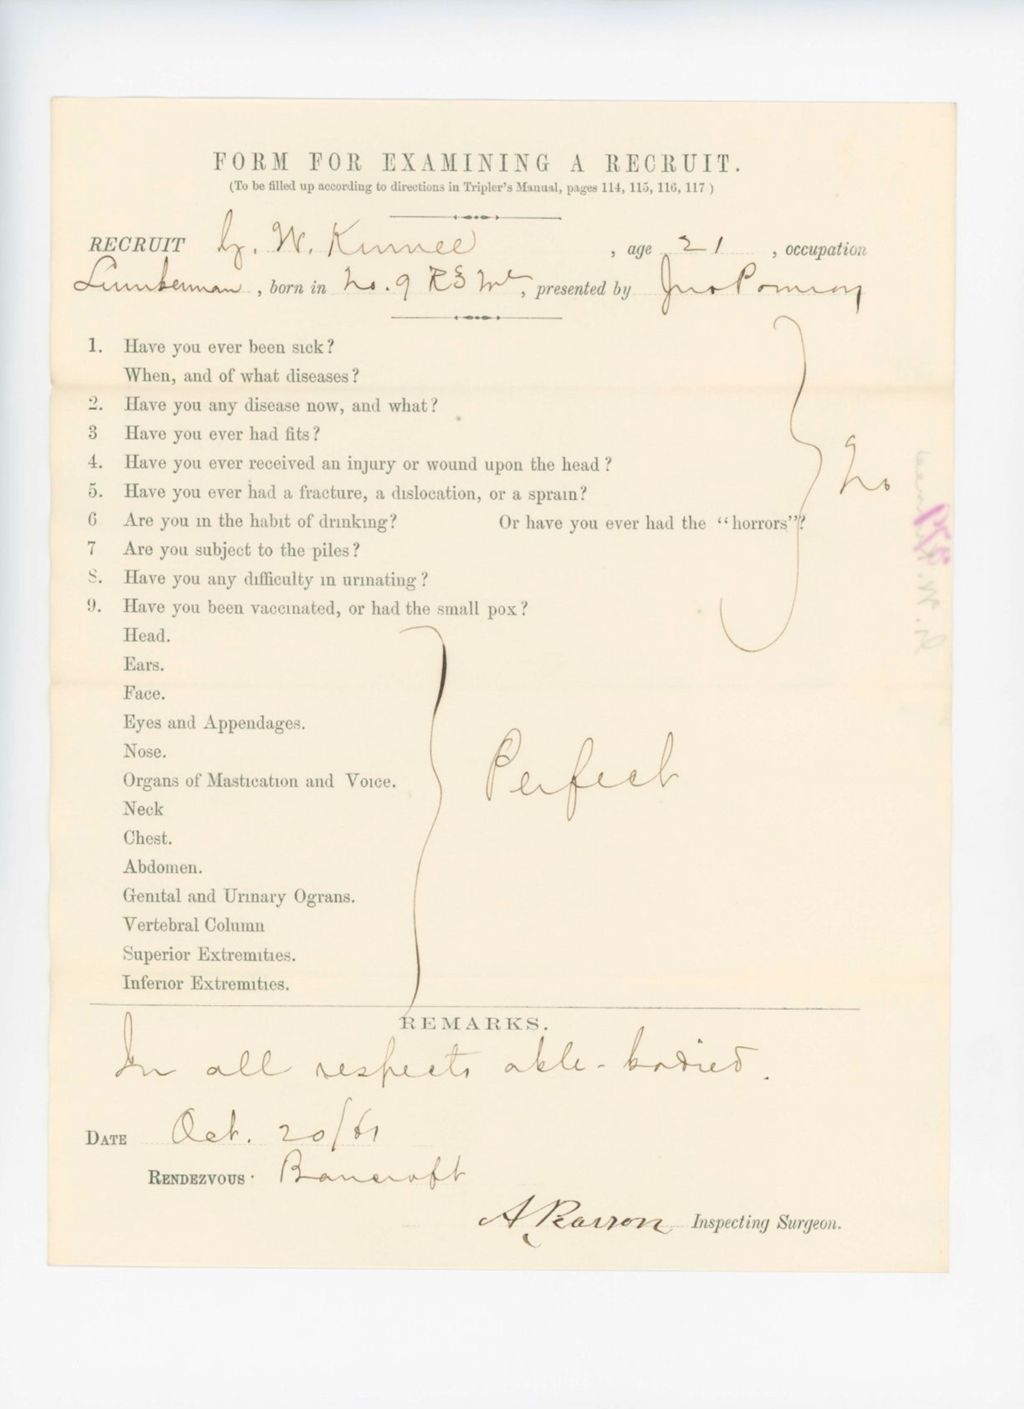 FORM FOR EXAMINING A RECRUIT.
(To be filled up according to directions in Tripler's Manual, pages 114, 115, 116, 117 )
RECRUIT G. W. Kinnee , age 21 , occupation
Lumberman , born in No. 9 R 5 Me , presented by Jno Pomroy
1. Have you ever been sick?
When, and of what diseases?
2. Have you any disease now, and what?
3 Have you ever had fits?
4. Have you ever received an injury or wound upon the head?
5. Have you ever had a fracture, a dislocation, or a sprain?
No
6 Are you in the habit of drinking? Or have you ever had the "horrors"?
7 Are you subject to the piles?
8. Have you any difficulty in urinating?
9. Have you been vaccinated, or had the small pox?
Head.
Ears.
Face.
Eyes and Appendages.
Nose.
Organs of Mastication and Voice.
Perfect
Neck
Chest.
Abdomen.
Genital and Urinary Ograns.
Vertebral Column
Superior Extremities.
Inferior Extremities.
REMARKS.
In all respects able-bodied.
DATE Oct. 20/61
RENDEZVOUS · Bancroft
A. Inspecting Surgeon.